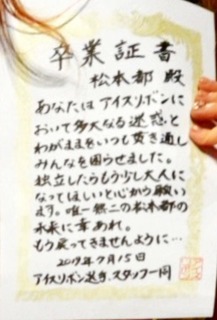 卒業証書
松本都 殿
あなたはアイスリボンに
おいて多大なる迷惑と
わがままをいつも貫き通し
みんなを困らせました。
独立したらもう少し大人に
なってほしいと心から願い
ます。唯一無二の松本都の
未来に幸あれ。
もう戻ってきませんように…
2017年7月15日
アイスリボン選手、スタッフ一同